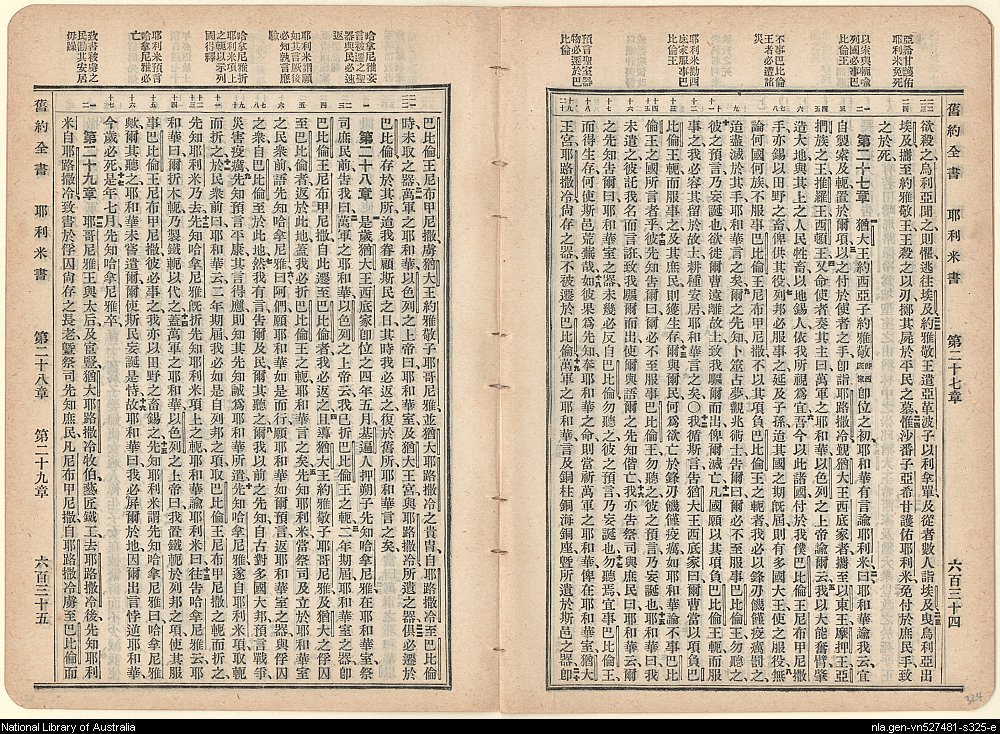 舊約全書 耶利米書 第二十七章 六百三十四
亞希甘護佑
耶利米免死
以索與軛喻
列國必事巴
比倫王
不事巴比倫
王者必遭諸
災
耶利米勸西
底家服事巴
比倫王
預言聖室器
物必遷於巴
比倫
欲殺之烏利亞聞之則懼逃往埃及約雅敬王遣亞革波子以利拿單及從者數人詣埃及曳烏利亞出
埃及攜至約雅敬王王殺之以刃擲其屍於平民之墓惟沙番子亞希甘護佑耶利米免付於庶民手致
之於死
第二十七章 猶大王約西亞子約雅敬即位之初耶和華有言諭耶利米曰耶和華諭我云宜
自製索及軛置於爾項以之付於使者之手即詣耶路撒冷覲猶大王西底家者攜至以東王摩押王亞
捫族之王推羅王西頓王又命使者奏其主曰萬軍之耶和華以色列之上帝諭爾云我以大能奮臂肇
造大地與其上之人民牲畜以地錫人依我所視為宜吾今以此諸國付於我僕巴比倫王尼布甲尼撒
手亦錫以田野之畜俾供其役列邦必服事之延及子孫迨其國之期既屆則有多國大王使之服役無
論何國何族不服事巴比倫王尼布甲尼撒不以其項負巴比倫王之軛者我必以鋒刃饑饉疫癘罰之
迨盡滅於其手耶和華言之矣爾之先知卜筮占夢觀兆術士告爾曰爾必不至服事巴比倫王勿聽之
彼之預言乃妄誕也欲徙爾曹遠離故土致我驅爾而出俾爾滅亡凡國願以其項負巴比倫王軛而服
事之我必容留於故土耕種安居耶和華言之矣○我循斯言告猶大王西底家曰爾曹當以項負巴
比倫王軛而服事之及其庶民則獲生存爾與民何為欲亡於鋒刃饑饉疫癘如耶和華論不事巴比
倫王之國所言者乎彼先知告爾曰爾必不至服事巴比倫王勿聽之彼之預言乃妄誕也耶和華曰我
未遣之彼託我名而言誑致我驅爾而出使爾與語爾之先知偕亡我亦告祭司與庶民曰耶和華云爾
之先知預言曰耶和華室之器未幾必反自巴比倫勿聽之彼之預言乃妄誕也勿聽焉宜事巴比倫王
而得生存何使斯邑荒蕪哉如彼果為先知奉耶和華之命則當祈萬軍之耶和華俾耶和華室猶大
王宮耶路撒冷尚存之器不被遷於巴比倫萬軍之耶和華言及銅柱銅海銅座暨所遺於斯邑之器即
哈拿尼雅妄
言被遷之聖
器與民必速
返
耶利米謂願
如其言厥後
必知孰言應
驗
哈拿尼雅折
耶利米項上
之軛以示列
國得釋
耶利米預言
哈拿尼雅必
亡
致書被虜之
民勸其安居
毋躁
巴比倫王尼布甲尼撒虜猶大王約雅敬子耶哥尼雅並猶大耶路撒冷之貴冑自耶路撒冷至巴比倫
時未取之器萬軍之耶和華以色列之上帝曰耶和華室及猶大王宮與耶路撒冷所遺之器俱必遷於
巴比倫存於其所迨我眷顧斯民之日其時我必返之復於舊所耶和華言之矣
第二十八章 是歲猶大王西底家即位之四年五月基遍人押朔子先知哈拿尼雅在耶和華室祭
司庶民前告我曰萬軍之耶和華以色列之上帝云我已折巴比倫王之軛二年期屆耶和華室之器即
巴比倫王尼布甲尼撒自此遷至巴比倫者我必返之且導猶大王約雅敬子耶哥尼雅及猶大之俘囚
至巴比倫者返於此地蓋我必折巴比倫王之軛耶和華言之矣先知耶利米當祭司及立於耶和華室
之民眾前語先知哈拿尼雅曰阿們願耶和華如是而行願耶和華如爾預言返耶和華室之器與俘囚
之眾自巴比倫至於此地然我有言告爾及民爾其聽之爾我以前之先知自古對多國大邦預言戰爭
災害疫癘先知預言平康其言得應則知其為先知誠為耶和華所遣先知哈拿尼雅遂自耶利米項取軛
而折之於民眾前曰耶和華云二年期屆我必如是自列邦之項取巴比倫王尼布甲尼撒之軛而折之
先知耶利米乃去先知哈拿尼雅既折先知耶利米項上之軛耶和華諭耶利米曰往告哈拿尼雅云耶
和華曰爾折木軛乃製鐵軛以代之蓋萬軍之耶和華以色列之上帝曰我置鐵軛於列邦之項使其服
事巴比倫王尼布甲尼撒彼必事之我亦以田野之畜錫之先知耶利米謂先知哈拿尼雅曰哈拿尼雅
歟爾其聽之耶和華未嘗遣爾爾使斯民妄誕是恃故耶和華曰我必屏爾於地因爾出言悖逆耶和華
今歲必死是年七月先知哈拿尼雅卒
第二十九章 耶哥尼雅王與太后及宦豎猶大耶路撒冷牧伯藝匠鐵工去耶路撒冷後先知耶利
米自耶路撒冷致書於俘囚尚存之長老暨祭司先知庶民凡尼布甲尼撒自耶路撒冷虜至巴比倫而
舊約全書 耶利米書 第二十八章 第二十九章 六百三十五
324
National Library of Australia
nla.gen-vn527481-s325-e